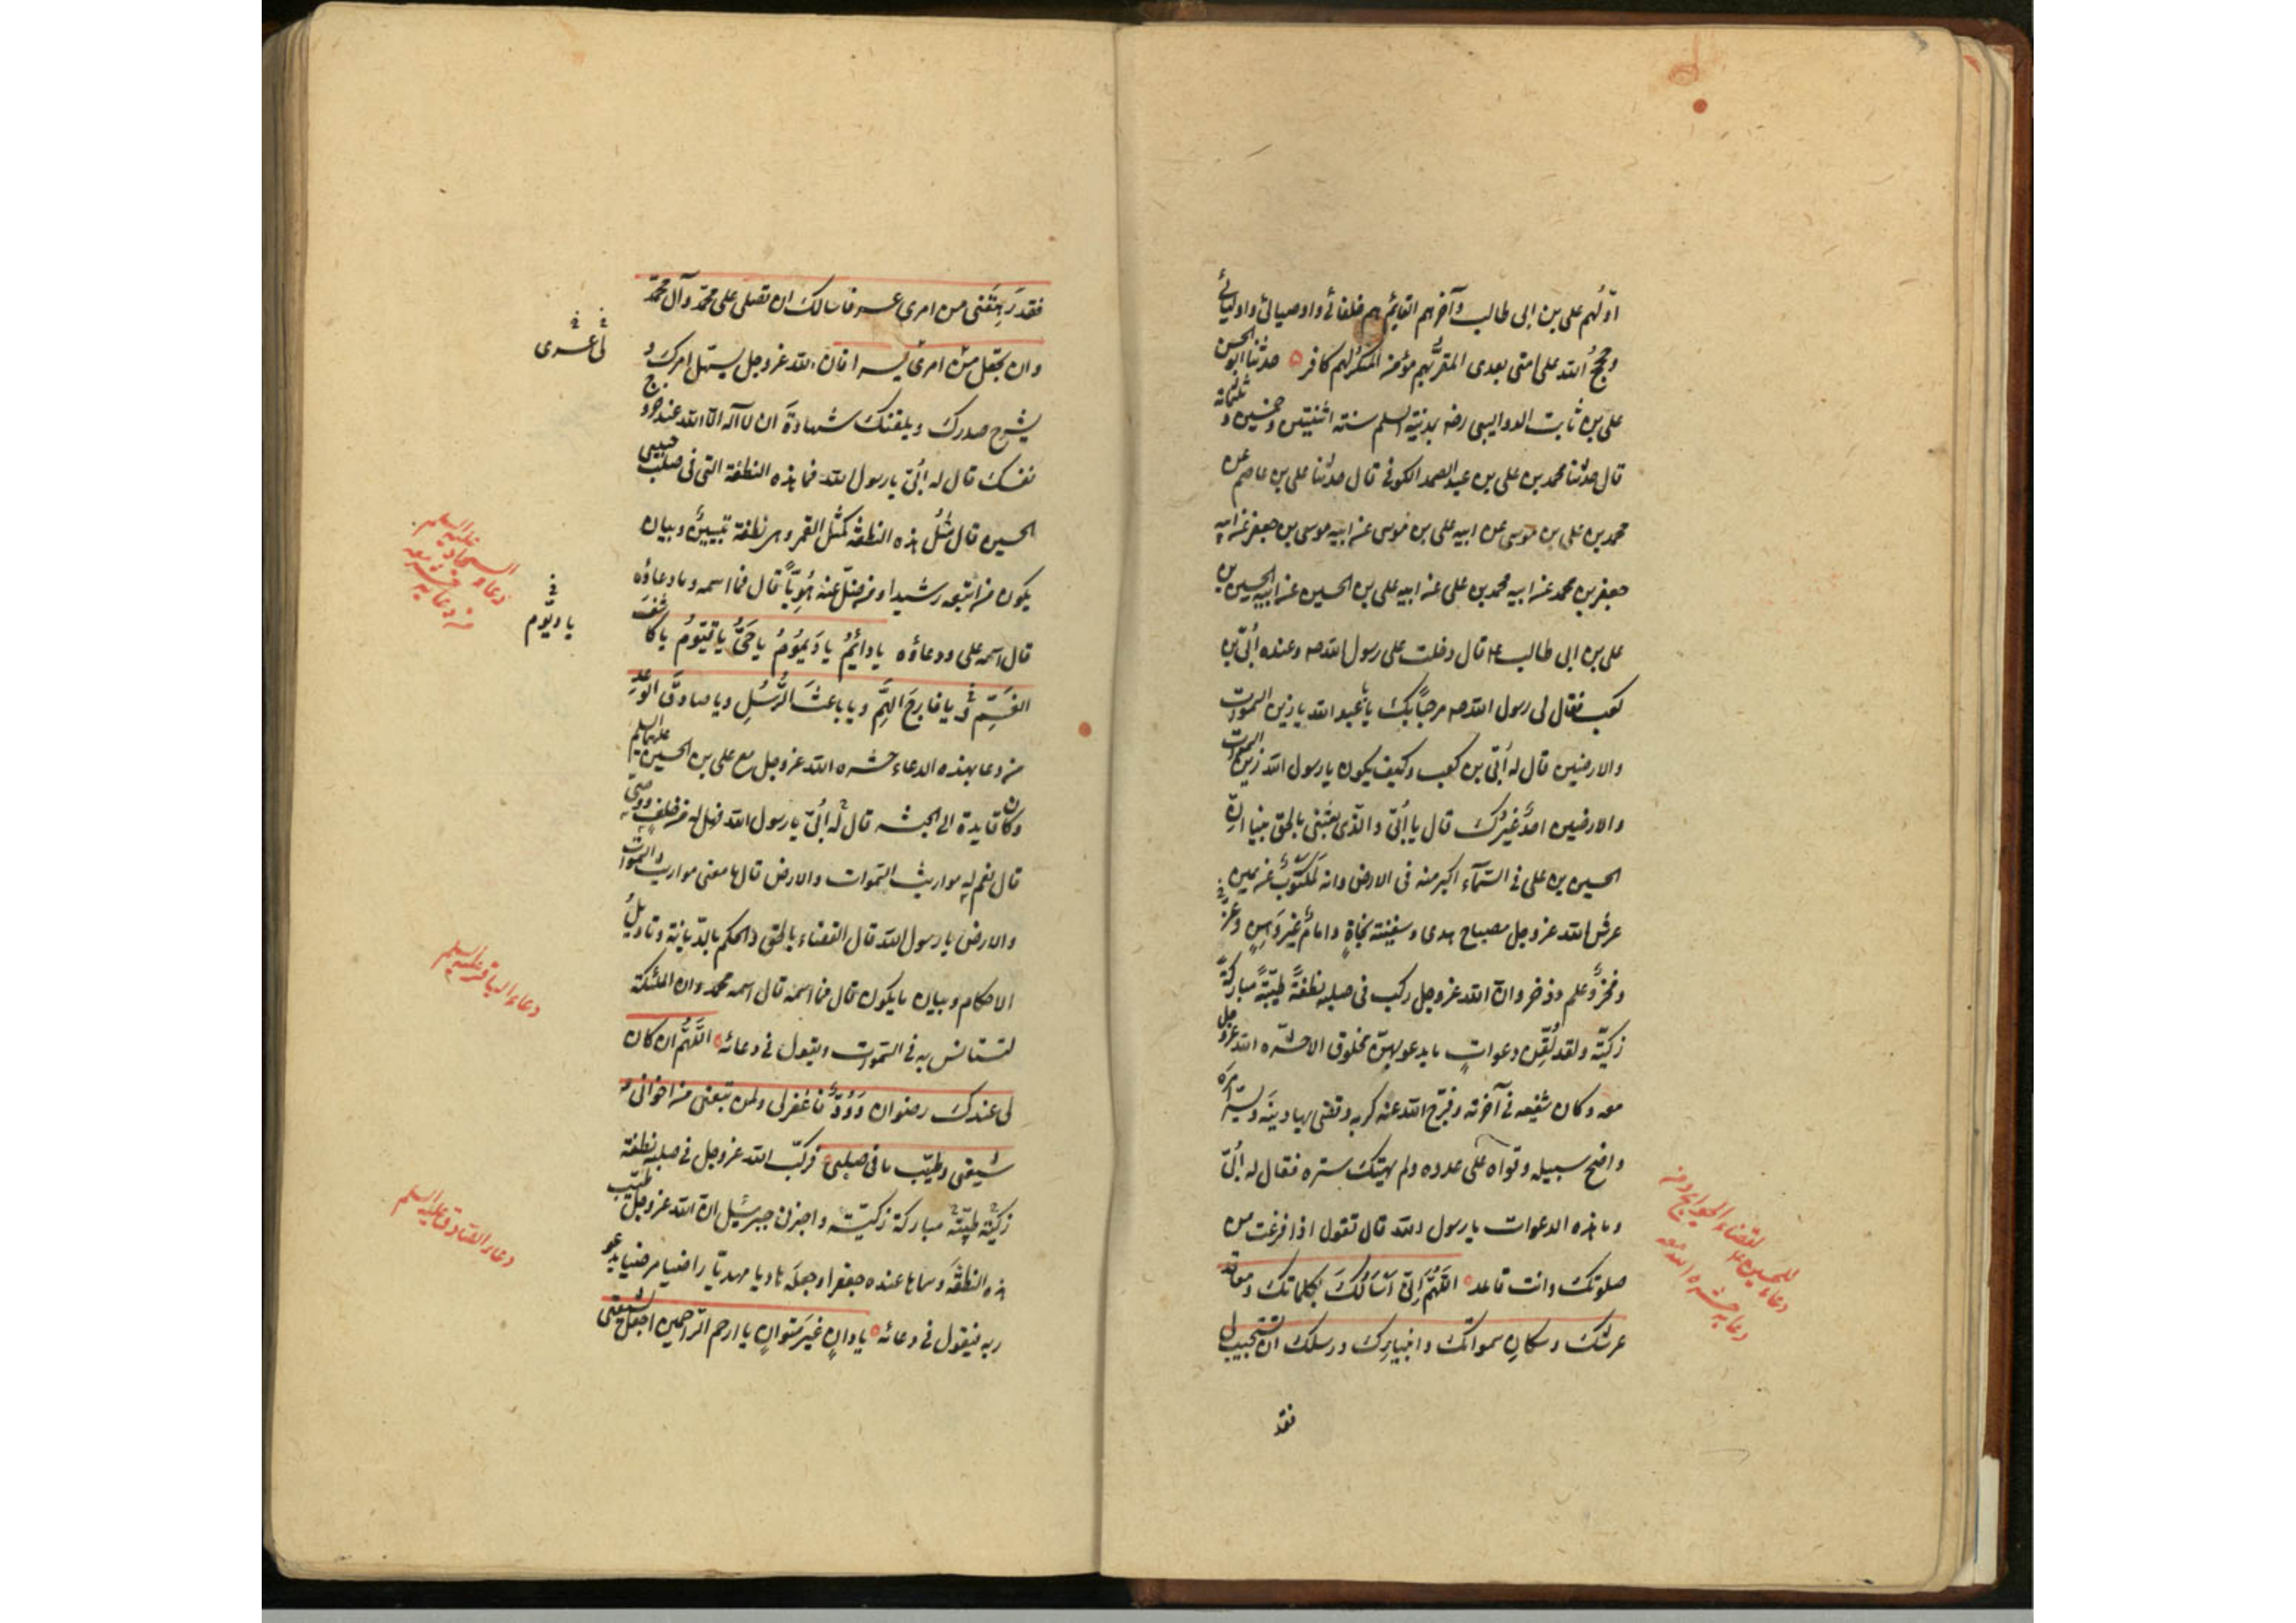 اوّلهم علي بن ابى طالب وآخرهم القايم هم خلفائي واوصيائي واوليائي
وحجج الله على امتى بعدى المقرّ بهم مؤمن المنكر لهم كافر حدثنا ابو الحسن
على بن ثابت الدواليبى رضه بمدينة السلم سنة اثنيتين وخمسين وثلثمائة
قال حدثنا محمد بن على بن عبد الصمد الكوفى قال حدثنا على بن عاصم عن
محمد بن على بن موسى عن ابيه على بن موسى عن ابيه موسى بن جعفر عن ابيه
جعفر بن محمد عن ابيه محمد بن على عن ابيه على بن الحسين عن ابيه الحسين بن
على بن ابى طالب ع قال دخلت على رسول الله صه وعنده اُبىّ بن
كعب فقال لى رسول الله صه مرحبًا بك يا با عبد الله يا زين السموات
والارضين قال له اُبىّ بن كعب وكيف يكون يا رسول الله زين السموات
والارضين احدٌ غيرك قال يا اُبىّ والذى بعثنى بالحق نبيا انّ
الحسين بن على فى السمآء اكبر منه فى الارض وانه لمكتوبٌ عن يمين
عرش الله عز وجل مصباح هدى وسفينة نجاةٍ وامامٌ غير وَهنٍ وعزٌّ
وفخرٌ وعلم وذخر وانّ الله عز وجل ركب فى صلبه نطفةً طيّبةً مباركةً
زكيّة ولقد لُقّن دعواتٍ ما يدعو بهنّ مخلوق الا حشره الله عز وجل
معه وكان شفيعه فى آخرته وفرّج الله عنه كربه وقضى بها دينَه ويسّر امرَه
واوضح سبيله وقواه على عدوه ولم يهتك ستره فقال له اُبىّ
وما هذه الدعوات يا رسول الله قال تقول اذا فرغت من
صلوتك وانت قاعد اللّهُمَّ اِنّى اَسْاَلُكَ بكلماتك ومعاقد
عرشك وسكانِ سمواتك وانبيائك ورسلك ان تستجيب لى
فقد
لقضاء الحوايج
دعاء للحسين ع
دعا به حشره الله معه
فقد رَهِقَنى من امرى عسر فاسالك ان تصلى على محمّد وآل محمّد
وان تجعل من امرى يسرا فان الله عز وجل يسهّل امرك و
يشرح صدرك ويلقنك شهادةَ ان لا آله الّا الله عند خروج
نفسك قال له اُبىّ يا رسول الله فما هذه النطفة التى فى صلب حبيبى
الحسين قال مَثَلُ هذه النطفة كمثل القمر وهى نطفة تبيين وبيان
يكون من اتبعه رشيدا ومن ضلّ عنه هُوِيّاً قال فما اسمه وما دعاؤه
قال اسمه على ودعاؤه يا دائِمُ يا دَيمُومُ يا حَىُّ يا قَيّومُ يا كاشفَ
الغَمِّ ويا فارِجَ الهَمِّ ويا باعثَ الرُّسُلِ ويا صادقَ الوَعدِ
من دعا بهذه الدعاء حشره الله عز وجل مع على بن الحسين عليهما السلم
وكان قايده الى الجنة قال له اُبىّ يا رسول الله فهل له من خلفٍ ووصىّ
قال نعم له مواريث السموات والارض قال ما معنى مواريث السموات
والارض يا رسول الله قال القضاء بالحق والحكم بالديانة وتاويلُ
الاحكام وبيان ما يكون قال فما اسمه قال اسمه محمد وان الملئكة
لتستانس به فى السموات ويقول فى دعائه اللّهُمَّ ان كان
لى عندك رضوان وَوُدٌّ فاغفرلى ولمن تبعنى من اخوانى و
شيعتى وطيّب ما فى صلبى فركّب الله عز وجل فى صلبه نطفة
زكيّة طيّبة مباركة زكيّة واخبرنى جبرئيل ان الله عز وجل طيّب
هذه النطفة وسماها عنده جعفرا وجعلَه هاديا مهديّا راضيا مرضيا يدعو
ربه فيقول فى دعائه يا دانٍ غيرَ متوانٍ يا ارحم الراحمين اجعل لشيعتى
لى عسرى
دعاء السجاد عليه السلم
يا ديّوم
دعاء الباقر عليه السلم
دعاء الصّادق عليه السلم